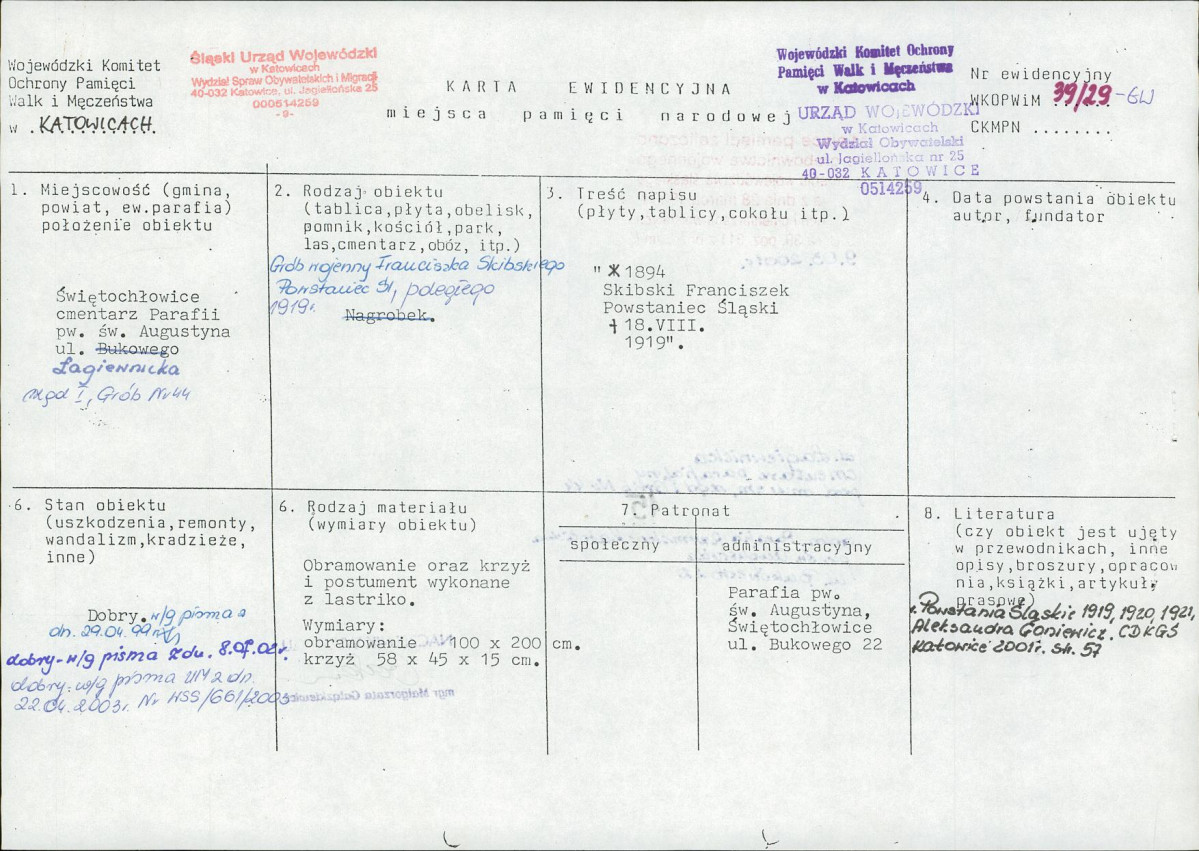 Wojewódzki Komitet
Ochrony Pamięci
Walk i Męczeństwa
w .KATOWICACH.
Śląski Urząd Wojewódzki
w Katowicach
Wydział Spraw Obywatelskich i Migracji
40-032 Katowice, ul. Jagiellońska 25
000514259
-9-
KARTA EWIDENCYJNA
miejsca pamięci narodowej
Wojewódzki Komitet Ochrony
Pamięci Walk i Męczeństwa
w Katowicach
URZĄD WOJEWÓDZKI
w Katowicach
Wydział Obywatelski
ul. Jagiellońska nr 25
40-032 KATOWICE
0514259
Nr ewidencyjny
WKOPWiM 39/29-GW
CKMPN ........
1. Miejscowość (gmina,
powiat, ew.parafia)
położenie obiektu
Świętochłowice
cmentarz Parafii
pw. św. Augustyna
ul. Bukowego
Łagiewnicka
rząd I, Grób Nr 44
2. Rodzaj obiektu
(tablica,płyta,obelisk,
pomnik,kościół,park,
las,cmentarz,obóz, itp.)
Grób wojenny Franciszka Skibskiego
Powstaniec Śl, poległego
1919r.
Nagrobek.
3. Treść napisu
(płyty,tablicy,cokołu itp.)
"*1894
Skibski Franciszek
Powstaniec Śląski
† 18.VIII.
1919".
4. Data powstania obiektu
autor, fundator
6. Stan obiektu
(uszkodzenia,remonty,
wandalizm,kradzieże,
inne)
Dobry. w/g pisma z
dn. 29.04.99r
dobry-w/g pisma z dn. 8.07.02r.
dobry-w/g pisma UM z dn.
22.04.2003r. Nr KSS/661/2003
6. Rodzaj materiału
(wymiary obiektu)
Obramowanie oraz krzyż
i postument wykonane
z lastriko.
Wymiary:
obramowanie - 100 x 200 cm.
krzyż 58 x 45 x 15 cm.
7. Patronat
społeczny
administracyjny
Parafia pw.
św. Augustyna,
Świętochłowice
ul. Bukowego 22
8. Literatura
(czy obiekt jest ujęty
w przewodnikach, inne
opisy,broszury,opracow
nia,książki,artykuły
prasowe)
1. Powstania Śląskie 1919, 1920, 1921,
Aleksandra Goniewicz. CDKGŚ
Katowice 2001r. str. 57